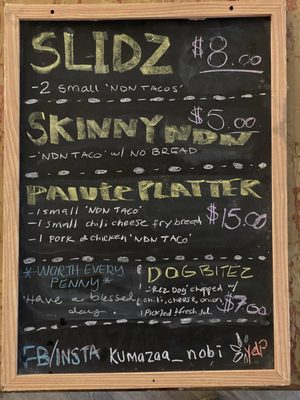 SLIDZ $8.00
-2 small 'NDN TACOS'
SKINNY NDN $5.00
-'NDN TACO' w/ NO BREAD
PAIUTE PLATTER
-1 small 'NDN TACO' $15.00
-1 small chili cheese fry bread
-1 pork or chicken 'NDN TACO'
*WORTH EVERY
PENNY*
Have a blessed
day.
DOGBITEZ
-'Rez Dog' chopped w/
chili, cheese, onion, $7.00
Pickled & fresh Jal.
FB/INSTA KUMAZAA_nobi